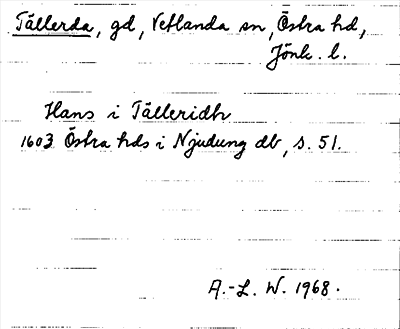 Tällerda, gd, Vetlanda sn, Östra hd,
Jönk. l.
Hans i Tälleridh
1603 Östra hds i Njudung db, s. 51.
A.-L. W. 1968.